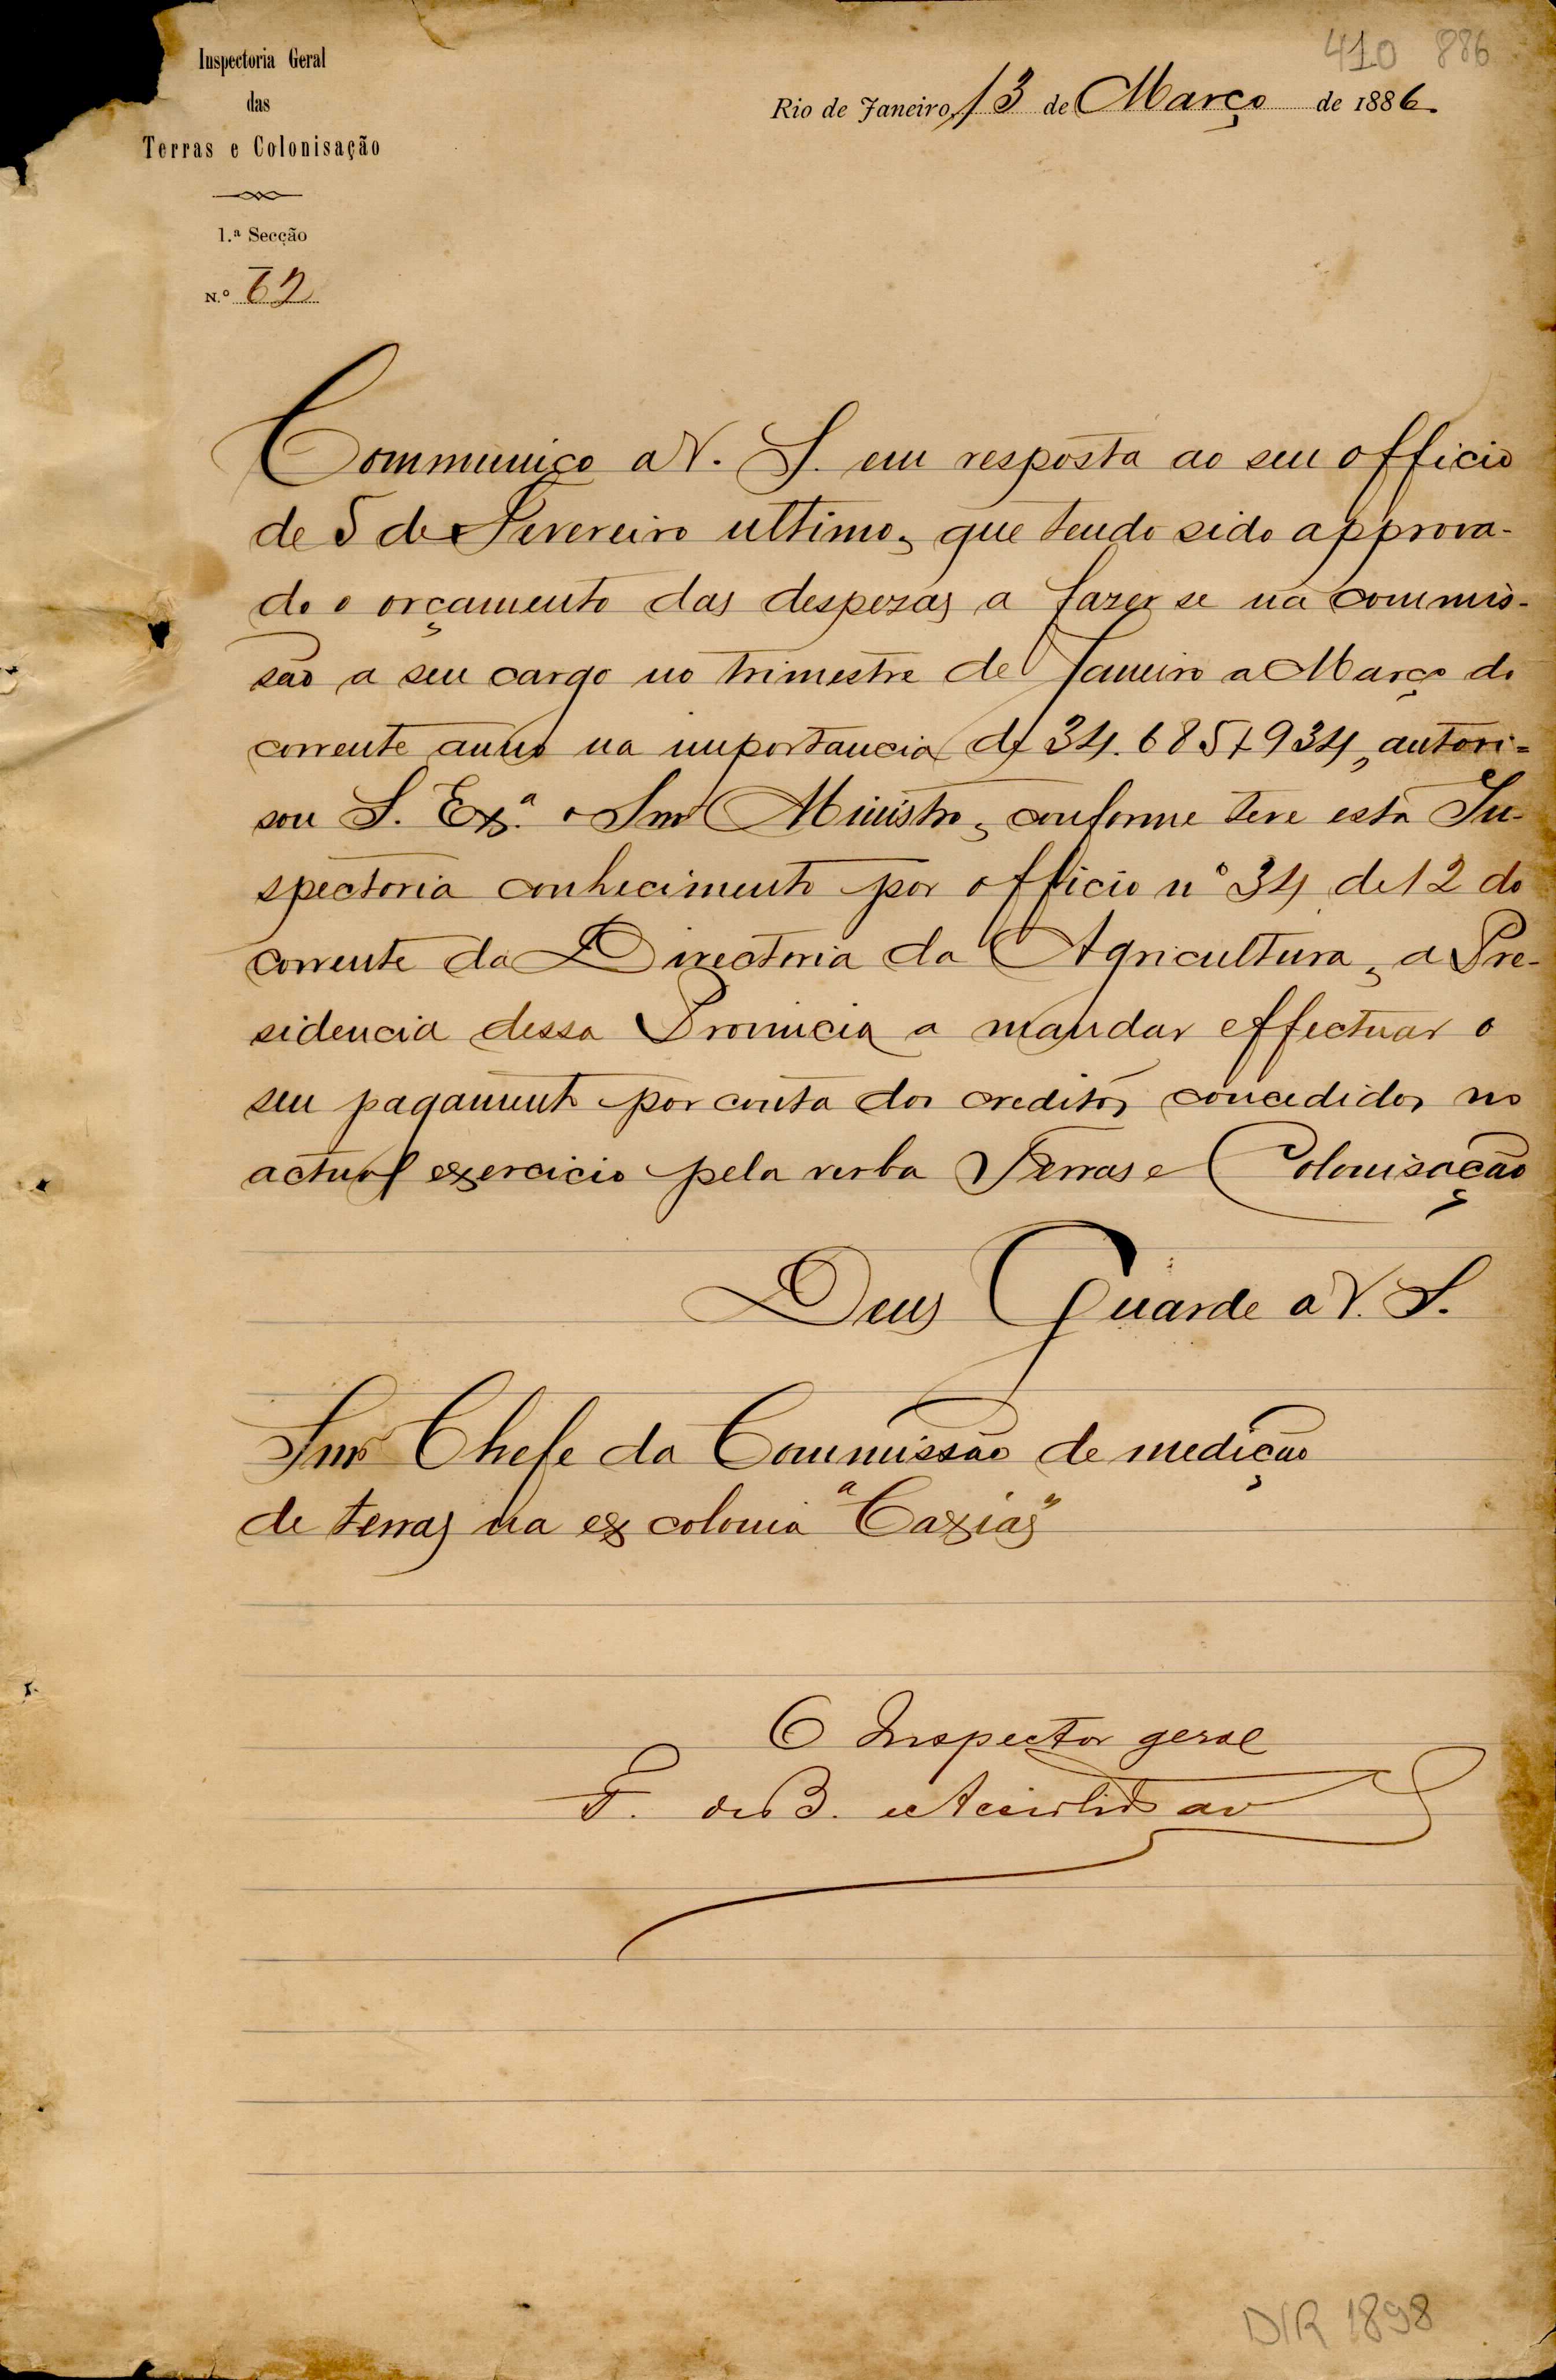 410 886
Inspectoria Geral
das
Terras e Colonisação
1.ª Secção
N.º 62
Rio de Janeiro, 13 de Março de 1886.
Communico a V. S. em resposta ao seu officio
de 5 de Fevereiro ultimo, que tendo sido approva-
do o orçamento das despezas a fazer se na commis-
são a seu cargo no trimestre de Janeiro a Março do
corrente anno na importancia de 34.685$934, autori=
sou S. Ex.ª o Snr Ministro, conforme teve esta In-
spectoria conhecimento por officio nº 34 de 12 do
corrente da Directoria da Agricultura, a Pre-
sidencia dessa Provincia a mandar effectuar o
seu pagamento por conta dos creditos concedidos no
actual exercicio pela verba Terras e Colonisação
Deus Guarde a V. S.
Snr Chefe da Commissão de medição
de terras na ex colonia "Caxias"
O Inspector geral
F. de B. e Accioli de
DIR 1898